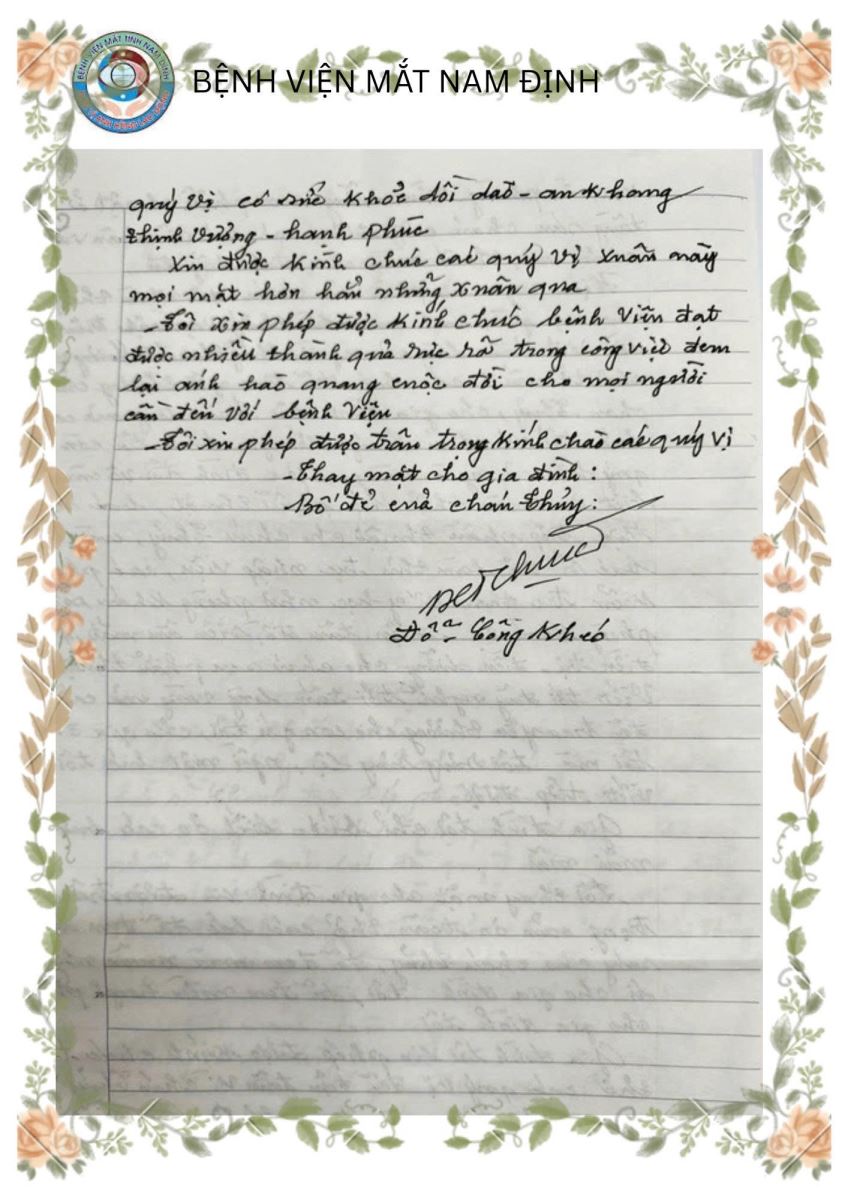 BỆNH VIỆN MẮT TỈNH NAM ĐỊNH
BỆNH VIỆN MẮT NAM ĐỊNH
quý vị có sức khoẻ dồi dào - an khang
thịnh vượng - hạnh phúc
Xin được kính chúc các quý vị xuân này
mọi mặt hơn hẳn những xuân qua
- Tôi xin phép được kính chúc bệnh viện đạt
được nhiều thành quả rực rỡ trong công việc đem
lại ánh hào quang cuộc đời cho mọi người
cần đến với bệnh viện
- Tôi xin phép được trân trọng kính chào các quý vị
- Thay mặt cho gia đình:
Bố đẻ của cháu Thủy:
Công Khéo